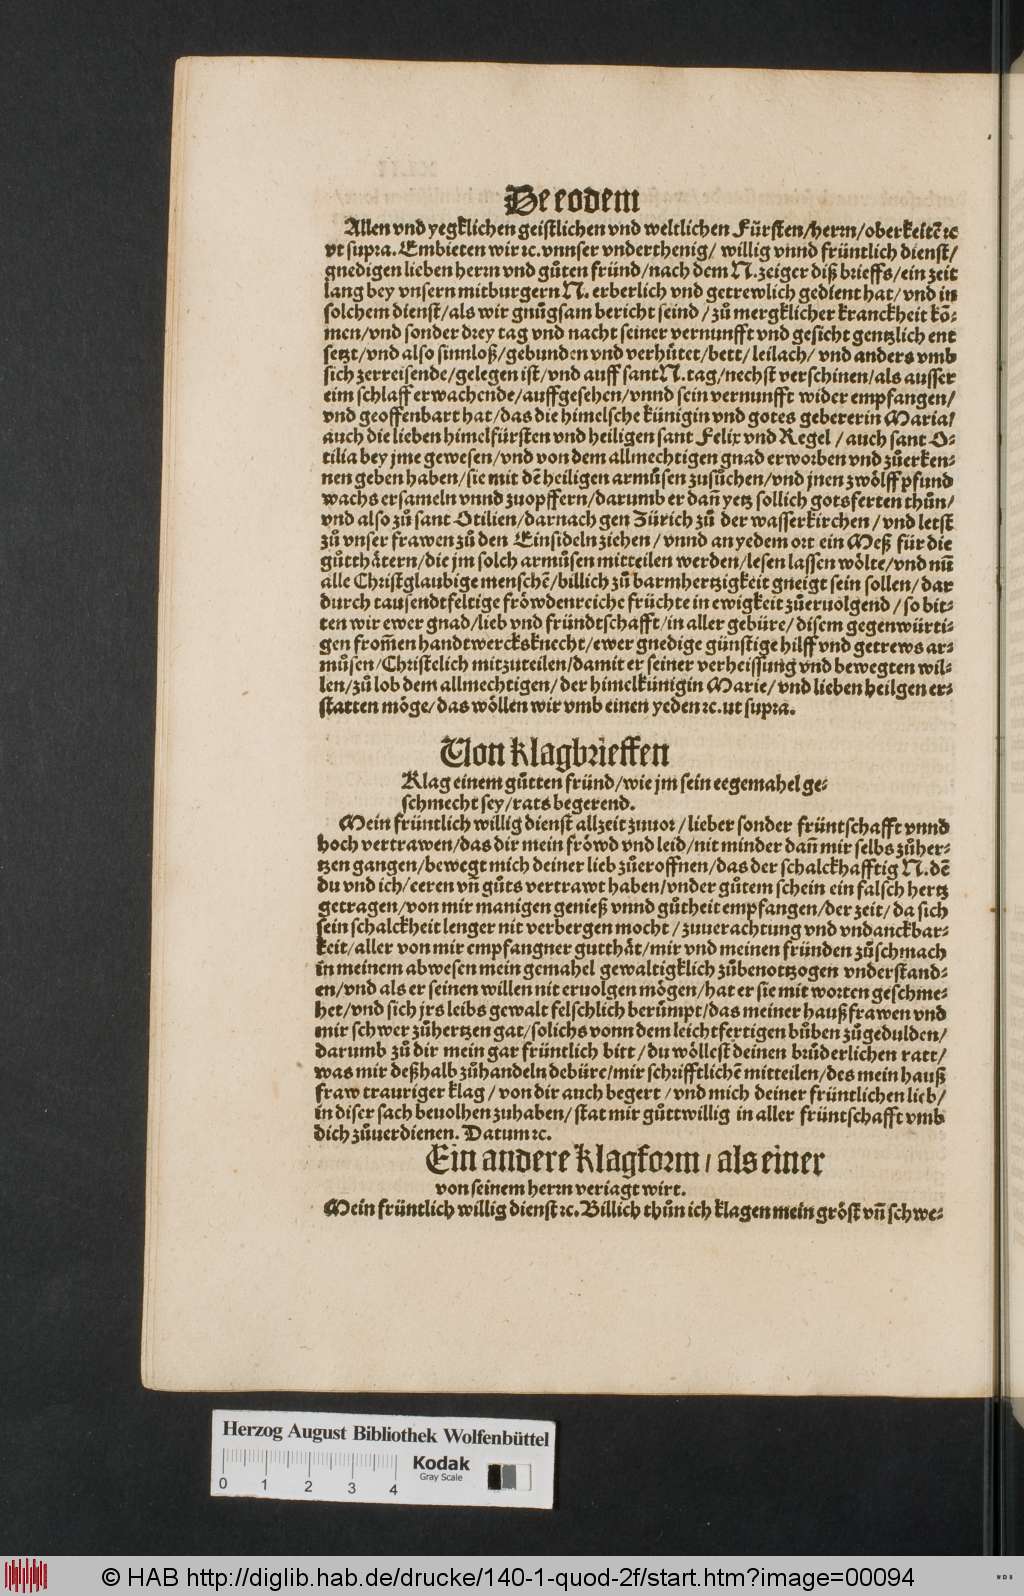 De eodem
Allen vnd yegklichen geistlichen vnd weltlichen Fürsten/herrn/oberkeitẽ ⁊c
vt supra. Embieten wir ⁊c. vnnser vnderthenig/ willig vnnd früntlich dienst/
gnedigen lieben herrn vnd gůten fründ/nach dem N. zeiger diß brieffs/ein zeit
lang bey vnsern mitburgern N. erberlich vnd getrewlich gedient hat/vnd in
solchem dienst/als wir gnůgsam bericht seind/zů mergklicher kranckheit kõ⸗
men/vnd sonder drey tag vnd nacht seiner vernunfft vnd gesicht gentzlich ent
setzt/vnd also sinnloß/gebunden vnd verhütet/bett/leilach/ vnd anders vmb
sich zerreisende/gelegen ist/vnd auff sant N. tag/nechst verschinen/als ausser
eim schlaff erwachende/auffgesehen/vnnd sein vernunfft wider empfangen/
vnd geoffenbart hat/das die himelsche künigin vnd gotes gebererin Maria/
auch die lieben himelfürsten vnd heiligen sant Felix vnd Regel / auch sant O⸗
tilia bey jme gewesen/vnd von dem allmechtigen gnad erworben vnd zůerken⸗
nen geben haben/sie mit dẽ heiligen armůsen zusůchen/vnd jnen zwölff pfund
wachs ersameln vnnd zuopffern/darumb er dañ yetz sollich gotsferten thůn/
vnd also zů sant Otilien/darnach gen Zürich zů der wasserkirchen / vnd letst
zů vnser frawen zů den Einsideln ziehen / vnnd an yedem ort ein Meß für die
gůtthätern/die jm solch armůsen mitteilen werden/lesen lassen wölte/vnd nũ
alle Christglaubige menschẽ/billich zů barmhertzigkeit gneigt sein sollen/dar
durch tausendtfeltige fröwdenreiche früchte in ewigkeit zůeruolgend / so bit⸗
ten wir ewer gnad/lieb vnd fründtschafft/in aller gebüre/disem gegenwürti⸗
gen from̃en handtwercksknecht/ewer gnedige günstige hilff vnd getrews ar⸗
můsen/Christelich mitzuteilen/damit er seiner verheissung vnd bewegten wil⸗
len/zů lob dem allmechtigen/der himelkünigin Marie/vnd lieben heilgen er⸗
statten möge/das wöllen wir vmb einen yeden ⁊c. ut supra.
Von klagbrieffen
Klag einem gůtten fründ/wie jm sein eegemahel ge⸗
schmecht sey/rats begerend.
Mein früntlich willig dienst allzeit zuuor/lieber sonder früntschafft vnnd
hoch vertrawen/das dir mein fröwd vnd leid/nit minder dañ mir selbs zůher⸗
tzen gangen/bewegt mich deiner lieb zůeroffnen/das der schalckhafftig N. dẽ
du vnd ich/eeren vñ gůts vertrawt haben/vnder gůtem schein ein falsch hertz
getragen/von mir manigen genieß vnnd gůtheit empfangen/der zeit/da sich
sein schalckheit lenger nit verbergen mocht / zuuerachtung vnd vndanckbar⸗
keit/aller von mir empfangner gutthät/mir vnd meinen fründen zůschmach
in meinem abwesen mein gemahel gewaltigklich zůbenottzogen vnderstand⸗
en/vnd als er seinen willen nit eruolgen mögen/hat er sie mit worten geschme⸗
het/vnd sich jrs leibs gewalt felschlich berůmpt/das meiner haußfrawen vnd
mir schwer zůhertzen gat/solichs vonn dem leichtfertigen bůben zůgedulden/
darumb zů dir mein gar früntlich bitt/du wöllest deinen brůderlichen ratt/
was mir deßhalb zůhandeln debüre/mir schrifftlichẽ mitteilen/des mein hauß
fraw trauriger klag / von dir auch begert / vnd mich deiner früntlichen lieb/
in diser sach beuolhen zuhaben/stat mir gůttwillig in aller früntschafft vmb
dich zůuerdienen. Datum ⁊c.
Ein andere klagform/als einer
von seinem herrn veriagt wirt.
Mein früntlich willig dienst ⁊c. Billich thůn ich klagen mein gröst vñ schwe⸗
Herzog August Bibliothek Wolfenbüttel
Kodak
Gray Scale
0 1 2 3 4
© HAB http://diglib.hab.de/drucke/140-1-quod-2f/start.htm?image=00094